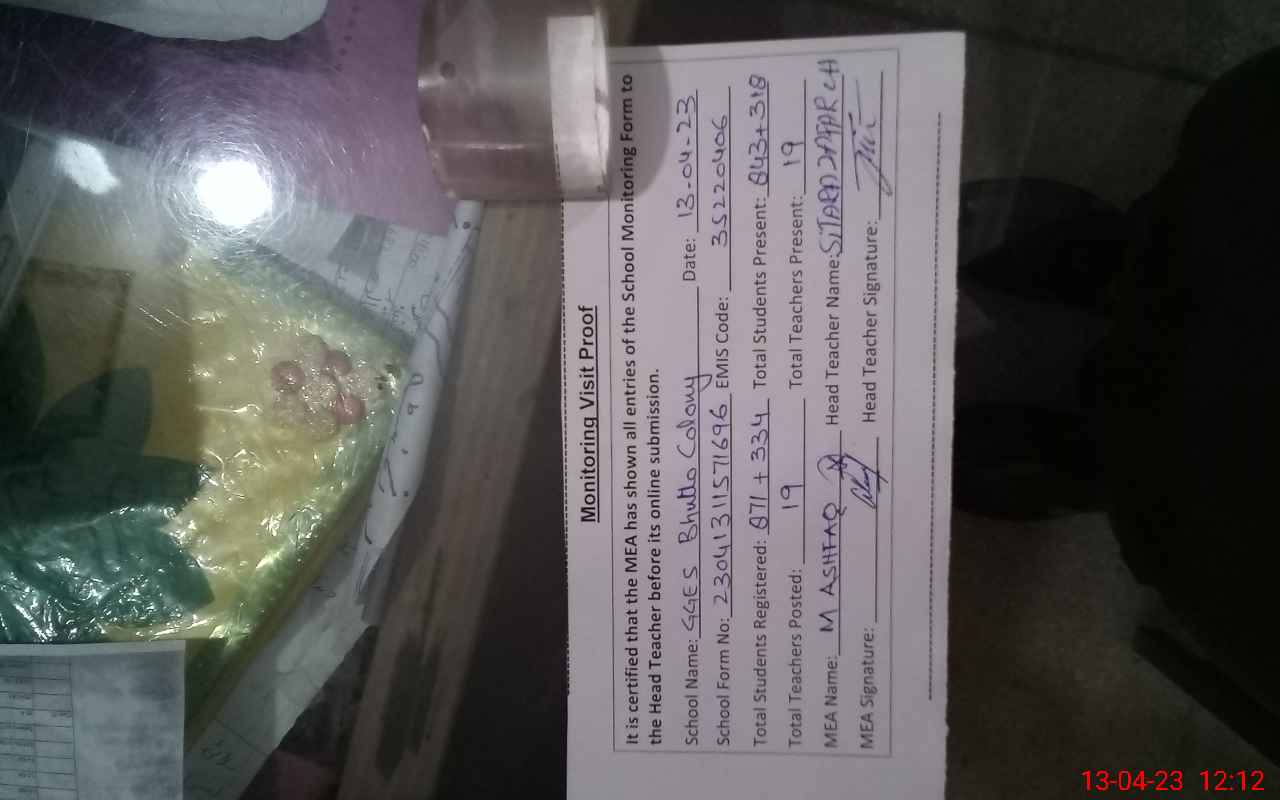 Monitoring Visit Proof
It is certified that the MEA has shown all entries of the School Monitoring Form to
the Head Teacher before its online submission.
School Name: GGES Bhutto Colony Date: 13-04-23
School Form No: 23041311571696 EMIS Code: 35220406
Total Students Registered: 871 + 334 Total Students Present: 843+318
Total Teachers Posted: 19 Total Teachers Present: 19
MEA Name: M ASHFAQ Head Teacher Name: SITARA ZAFAR CH
MEA Signature: Head Teacher Signature:
13-04-23 12:12